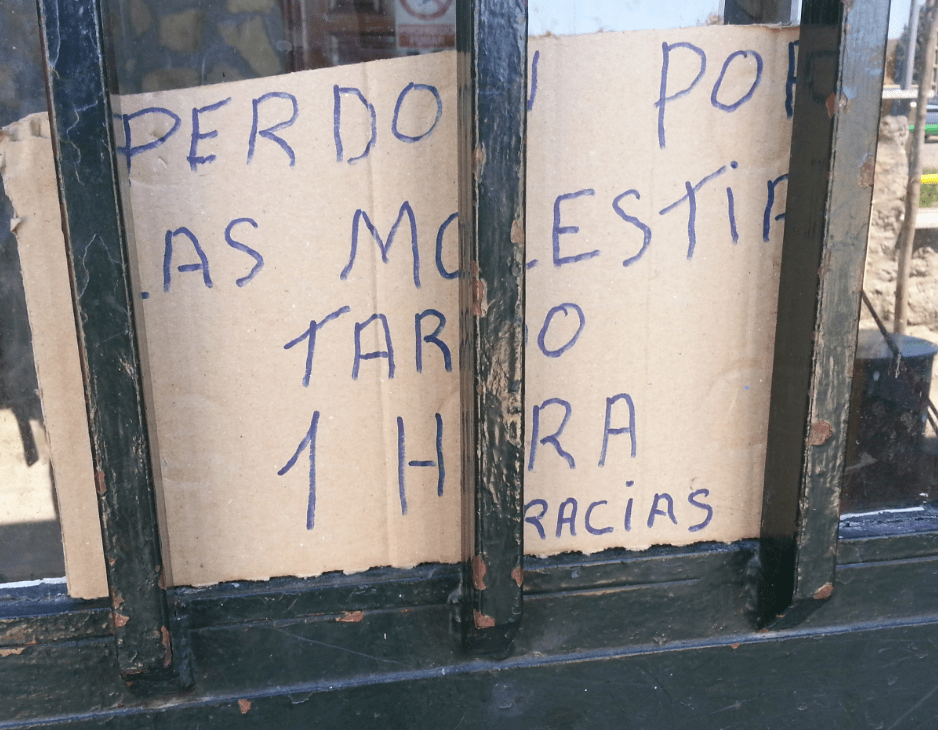 PERDON POR
LAS MOLESTIA
TARDO
1 HORA
GRACIAS